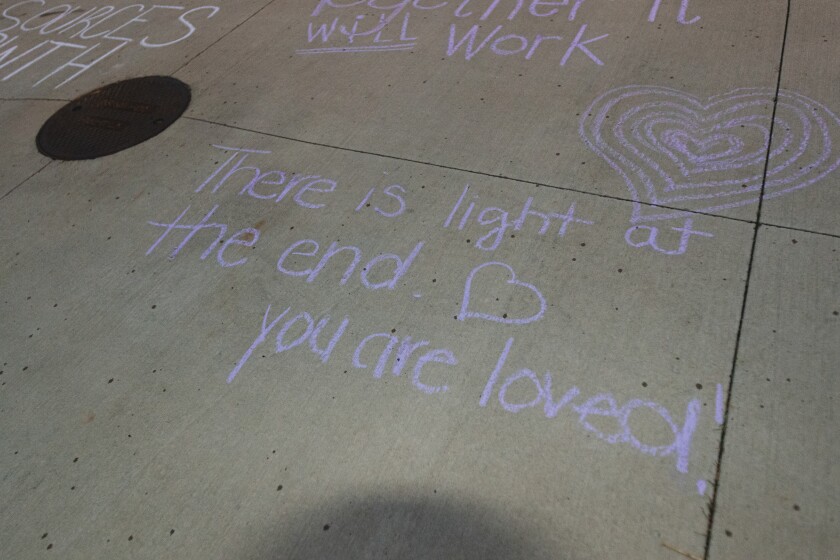 SOURCES
WITH
together it
will work
There is light at
the end.
you are loved!